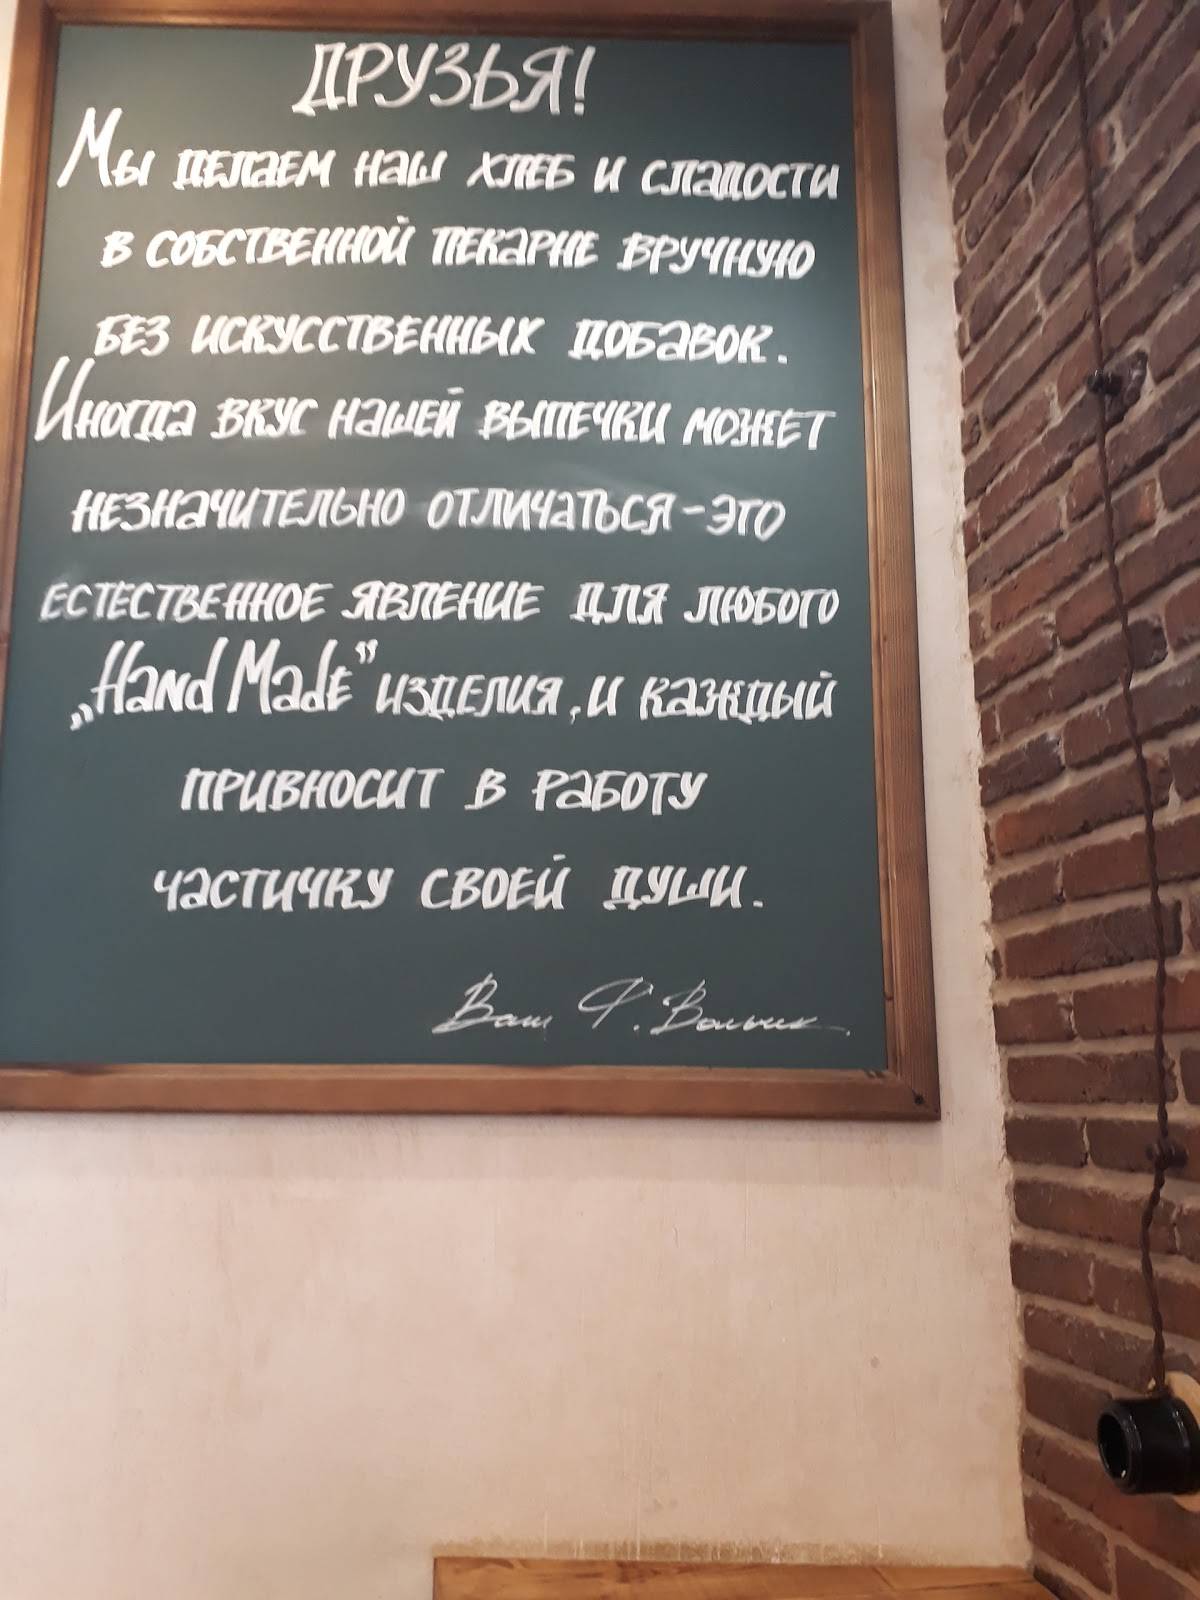 ДРУЗЬЯ!
Мы делаем наш хлеб и сладости
в собственной пекарне вручную
без искусственных добавок.
Иногда вкус нашей выпечки может
незначительно отличаться - это
естественное явление для любого
„Hand Made” изделия, и каждый
привносит в работу
частичку своей души.
Ваш Ф. Вольчек.